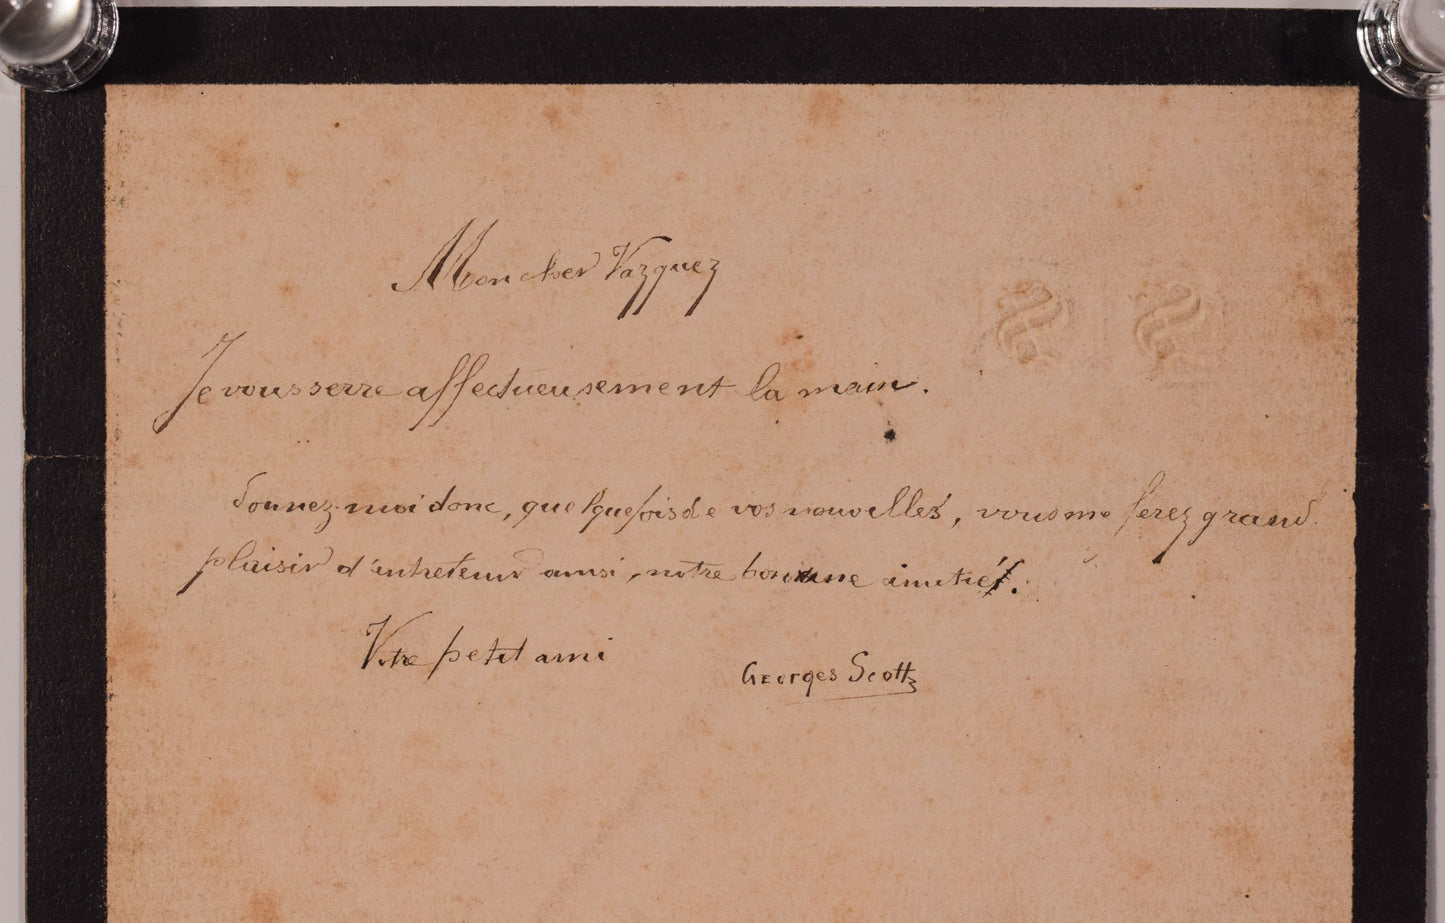 Mon cher Vazquez
Je vous serre affectueusement la main.
donnez-moi donc, quelquefois de vos nouvelles, vous me ferez grand
plaisir d'entretenir ainsi, notre bonne amitié.
Votre petit ami
Georges Scott